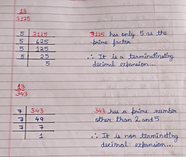 13
3125
5 3125
5 625
5 125
5 25
5
3125 has only 5 as the
prime factor
∴ It is a terminating
decimal expansion...
13
343
7 343
7 49
7 7
1
343 has a prime number
other than 2 and 5
∴ It is non terminating
decimal expansion...